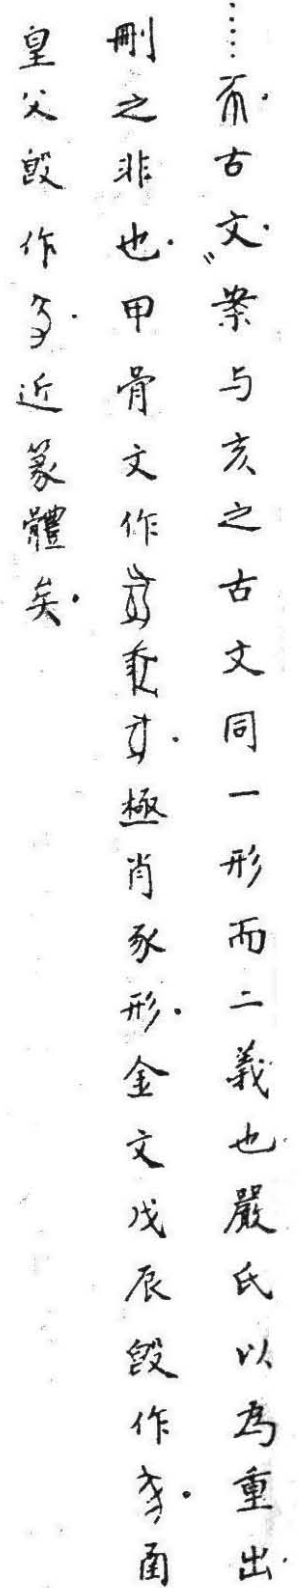 ……古文。案与亥之古文同一形而二義也嚴氏以為重出.
刪之非也.甲骨文作.極肖豕形.金文戊辰𣪘作.函
皇父𣪘作.近篆體矣.